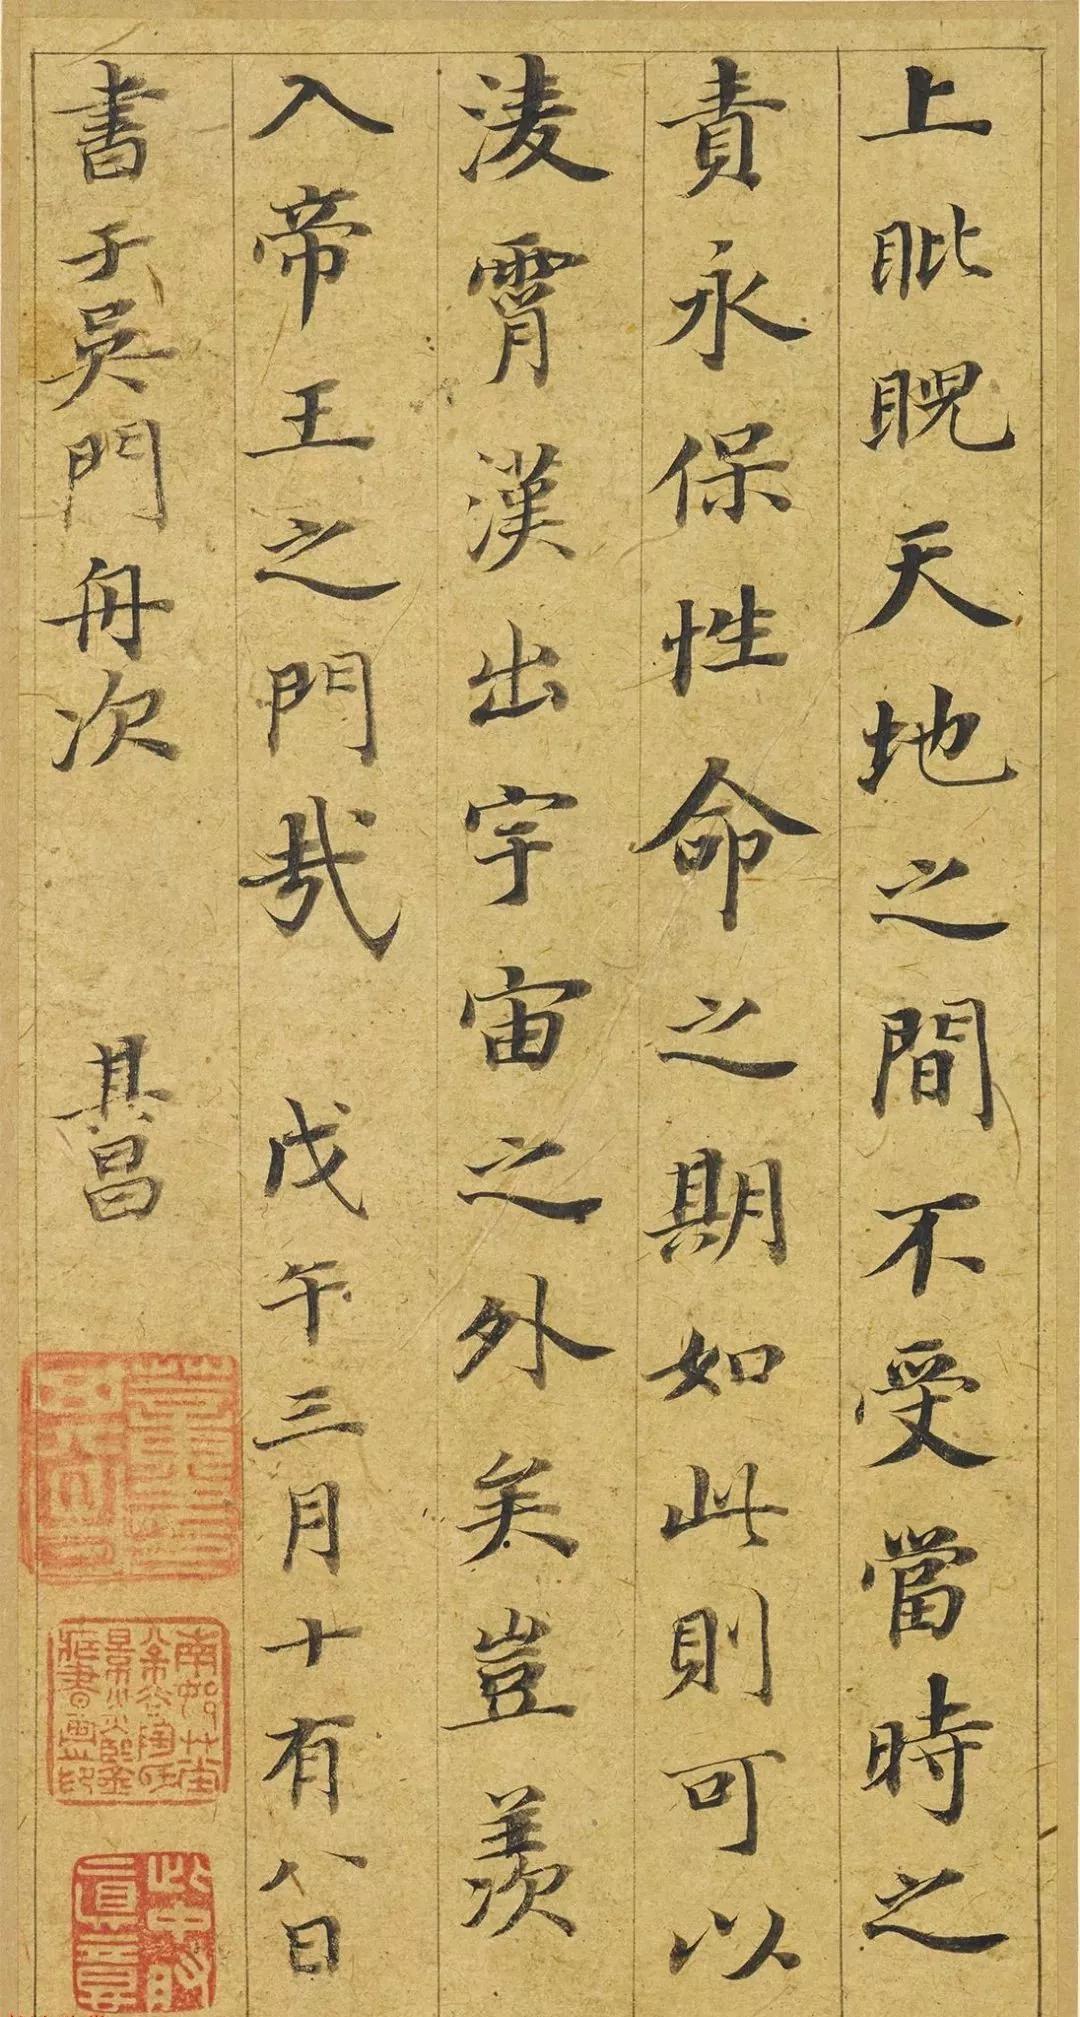 上毗睨天地之間不受當時之
責永保性命之期如此則可以
淩霄漢出宇宙之外矣豈羨
入帝王之門哉 戊午三月十有八日
書于吳門舟次 其昌